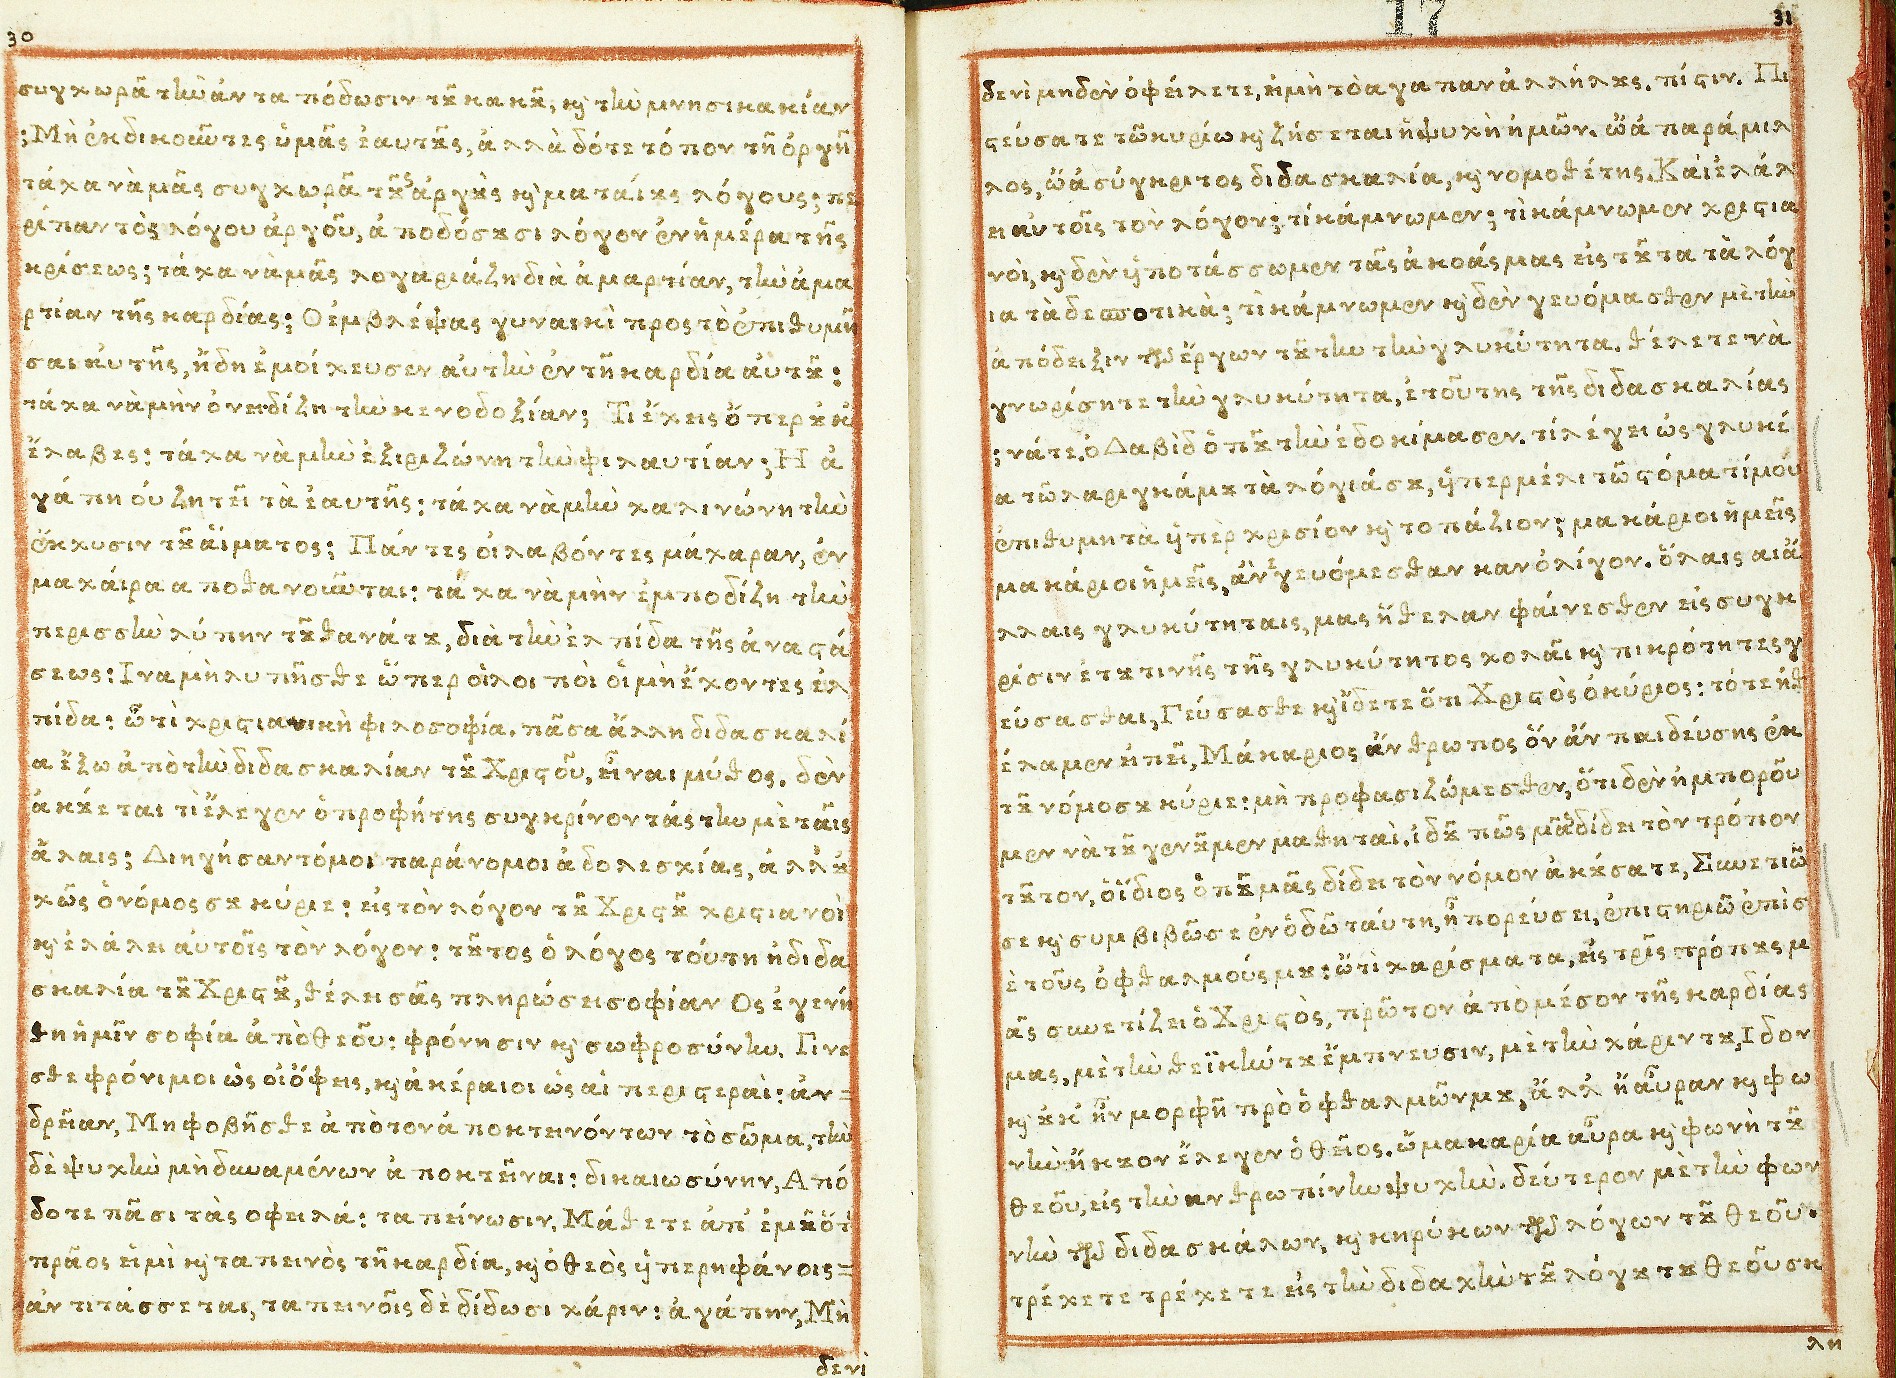 30
συγχωρᾶ τὴν ἀνταπόδωσιν τοῦ κακοῦ, καὶ τὴν μνησικακίαν
; Μὴ ἐκδικοῦντες ὑμᾶς ἑαυτοὺς, ἀλλὰ δότε τόπον τῆ ὀργῆ
τάχα νὰ μᾶς συγχωρᾶ τοὺς ἀργοὺς καὶ ματαίους λόγους; πε
ρὶ παντὸς λόγου ἀργοῦ, ἀποδόσουσι λόγον ἐν ἡμέρα τῆς
κρίσεως; τάχα νὰ μᾶς λογαριάζη διὰ ἁμαρτίαν, τὴν ἁμα
ρτίαν τῆς καρδίας; Ο ἐμβλέψας γυναικὶ προς τὸ ἐπιθυμῆ
σαι αὐτῆς, ἤδη ἐμοίχευσεν αὐτὴν ἐν τῆ καρδία αὐτοῦ:
τάχα νὰ μὴν ὀνειδίζη τὴν κενοδοξίαν; Τι ἔχεις ὅπερ οὐκ
ἔλαβες: τάχα νὰ μὴν ἐξιριζώνη τὴν φιλαυτίαν; Η ἀ
γάπη οὐ ζητεῖ τὰ ἑαυτῆς: τάχα νὰ μὴν χαλινώνη τὴν
ἔκχυσιν τοῦ αἵματος; Πάντες οἱ λαβόντες μάχαραν, ἐν
μαχάιρα αποθανοῦνται: τάχα νὰ μὴν ἐμποδίζη τὴν
περισσὴν λύπην τοῦ θανάτου, διὰ τὴν ἐλπίδα τῆς ἀναστά
σεως: Ινα μὴ λυπῆσθε ὥπερ οἱ λοιποὶ οἱ μὴ ἔχοντες ἐλ
πίδα: ὦ τὶ χριστιανικὴ φιλοσοφία. πᾶσα ἄλλη διδασκαλί
α ἔξω ἀπὸ τὴν διδασκαλίαν τοῦ Χριστοῦ, εἶναι μύθος. δὲν
ἀκούεται τὶ ἔλεγεν ὁ προφήτης συγκρίνοντάς την μὲ ταῖς
ἄλαις; Διηγήσαντόμοι παράνομοι ἀδολεσχίας, ἀλλ οὐ
χῶς ὁ νόμος σου κύριε: εἰς τὸν λόγον τοῦ Χριστοῦ χριστιανοὶ
καὶ ἐλάλει αὐτοῖς τὸν λόγον: τοῦτος ὁ λόγος τούτη ἡ διδα
σκαλία τοῦ Χριστοῦ, θέλει σᾶς πληρώσει σοφίαν Ος ἐγενή
θη ἡμῖν σοφία ἀπὸ θεοῦ: φρόνησιν καὶ σωφροσύνην. Γινε
σθε φρόνιμοι ὡς οἱ ὄφεις, καὶ ἀκέραιοι ὡς αἱ περιστεραὶ: ἀν=
δρείαν, Μη φοβῆσθε ἀπὸ τον ἀποκτεινόντων τὸ σῶμα, τὴν
δὲ ψυχὴν μὴ δυναμένων ἀποκτεῖναι: δικαιωσύνην, Από
δοτε πᾶσι τὰς οφειλά: ταπείνωσιν, Μάθετε ἀπ' ἐμοῦ ὅτι
πρᾶος εἰμὶ καὶ ταπεινὸς τῆ καρδία, καὶ ὁ θεὸς ὑπερηφάνοις=
ἀντιτάσσεται, ταπεινοῖς δὲ δίδωσι χάριν: ἀγάπην, Μὴ
δενὶ
17
31
δενὶ μηδὲν ὀφείλετε, εἰμὴ τὸ αγαπαν ἀλλήλους. πίστιν. Πι
στεύσατε τῶ κυρίω καὶ ζήσεται ἡ ψυχὴ ἡμῶν. ὢ ἀπαράμιλ
λος, ὢ ἀσύγκριτος διδασκαλία, καὶ νομοθέτης. Κὰι ἐλάλ
ει αὐτοῖς τὸν λόγον; τί κάμνωμεν; τὶ κάμνωμεν χριστια
νοὶ, καὶ δὲν ὑποτάσσωμεν τᾶς ἀκοάς μας εἰς τοῦτα τὰ λόγ
ια τὰ δεσποτικὰ; τὶ κάμνωμεν καὶ δὲν γευόμασθεν μὲ τὴν
ἀπόδειξιν τῶν ἔργων τούτην τὴν γλυκύτητα. θέλετε νὰ
γνωρίσητε τὴν γλυκύτητα, ἐτοῦτης τῆς διδασκαλίας
; νάτε ὁ Δαβὶδ ὁποῦ τὴν ἐδοκίμασεν. τί λέγει ὡς γλυκέ
α τῶ λαριγκάμου τὰ λόγιά σου, ὑπερ μέλι τῶ στόματί μου
ἐπιθυμητὰ ὑπὲρ χρισίον καὶ τοπάζιον; μακάριοι ἡμεῖς
μακάριοι ἡμεῖς, ἂν ἐγευόμεσθαν καν ὀλίγον. ὅλαις αι ἄ
λλαις γλυκύτηταις, μας ἤθελαν φαίνεσθεν εἰς συγκ
ρίσιν ἐτουτινῆς τῆς γλυκύτητος χολᾶι καὶ πικρότητες γ
εύσασθαι, Γεύσασθε καὶ ἴδετε ὅτι Χριστὸς ὁ κύριος: τότε ἠθ
έλαμεν εἰπεῖ, Μάκαριος ἄνθρωπος ὅν ἂν παιδεύσης ἐκ
τοῦ νόμου σου κύριε: μὴ προφασιζώμεσθεν, ὅτι δὲν ἠμποροῦ
μεν νὰ τοῦ γενοῦμεν μαθηταὶ. ἰδοῦ πῶς μᾶς δίδει τὸν τρόπον
τοῦτον, ὁ ἴδιος ὁποῦ μᾶς δίδει τὸν νόμον ἀκούσατε, Συνετιῶ
σε καὶ συμβιβῶ σε ἐν ὁδῶ ταύτη, ἧ πορεύσει, ἐπιστηριῶ ἐπὶ σ
ὲ τοῦς ὀφθαλμούς μου: ὢ τὶ χαρίσματα, εἰς τρῖς πρόπους μ
ᾶς συνετίζει ὁ Χριστὸς, πρῶτον ἀπὸ μέσον τῆς καρδίας
μας, μὲ τὴν θεϊκήν του ἔμπνευσιν, μὲ τὴν χάριν του, Ιδον
καὶ οὐκ ἦν μορφῆ πρὸ ὀφθαλμῶν μου, ἄλλ ἢ αὖραν καὶ φω
νὴν ἤκουον ἔλεγεν ὁ θεῖος. ὢ μακαρία αὖρα καὶ φωνὴ τοῦ
θεοῦ, εἰς τὴν ανθρωπίνην ψυχὴν. δεύτερον μὲ τὴν φων
νὴν τῶν διδασκάλων, καὶ κηρύκων τῶν λόγων τοῦ θεοῦ.
τρέχετε τρέχετε εἰς τὴν διδαχὴν τοῦ λόγου του θεοῦ σκ
λη